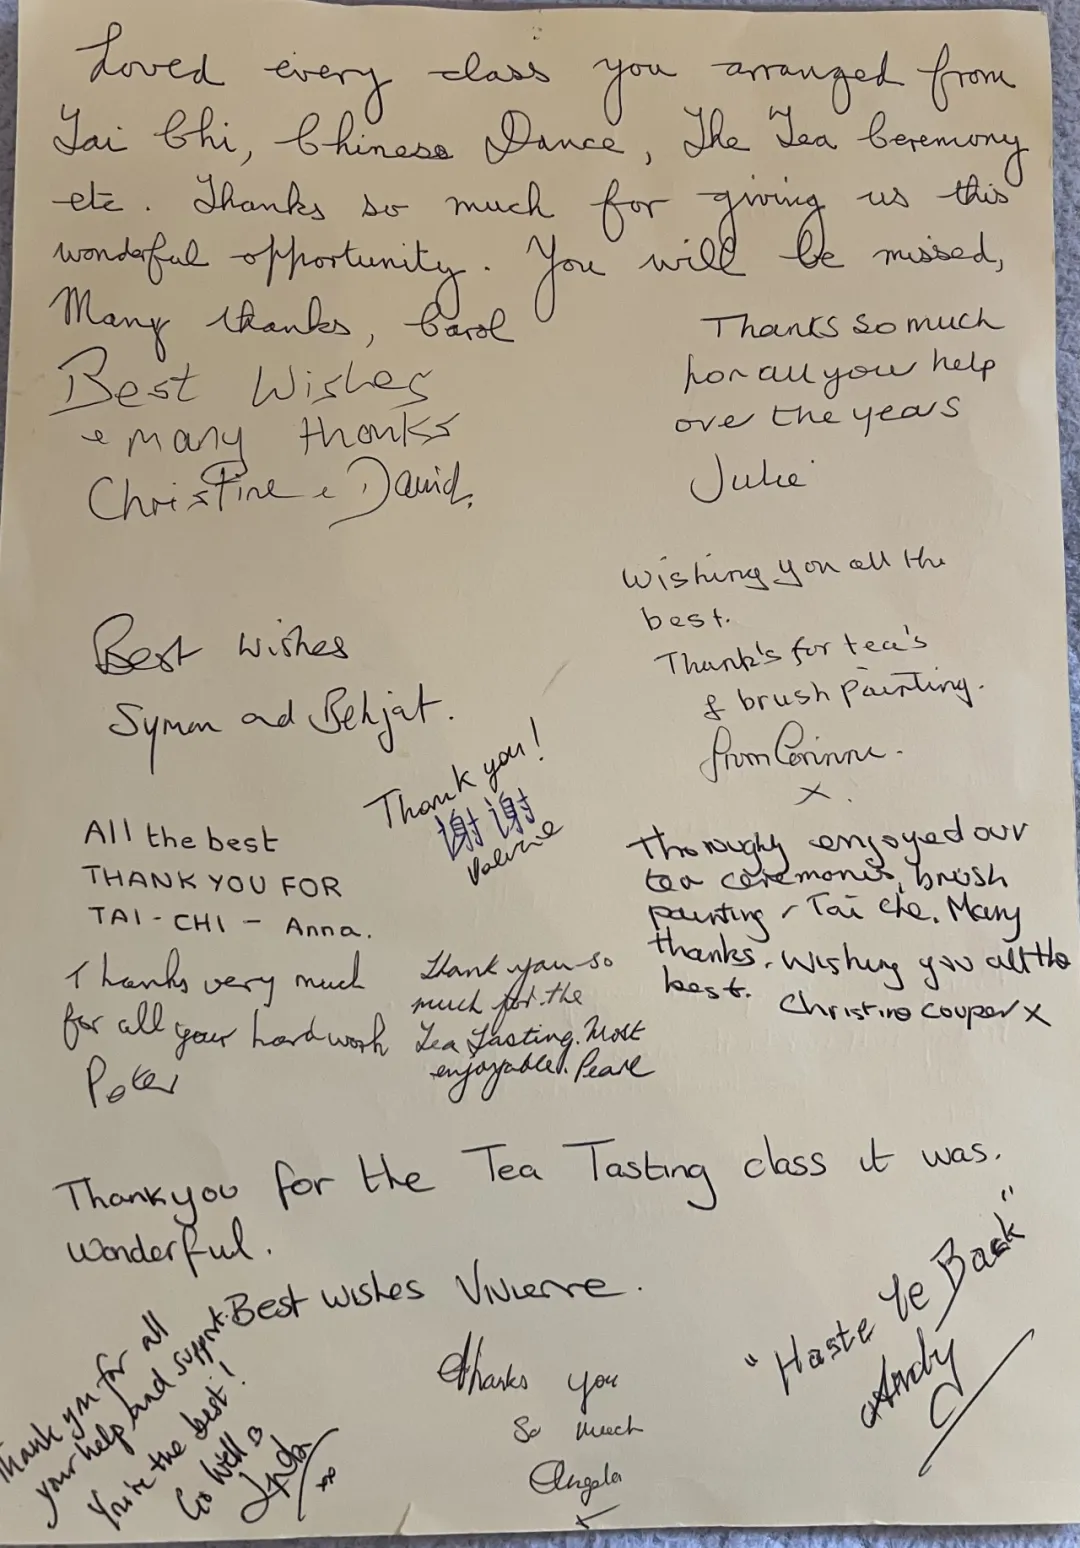 Loved every class you arranged from
Tai Chi, Chinese Dance, The Tea Ceremony
etc. Thanks so much for giving us this
wonderful opportunity. You will be missed,
Many thanks, Carol
Best Wishes
& many thanks
Christine & David.
Thanks so much
for all your help
over the years
Julie
Wishing you all the
best.
Thank's for tea's
& brush painting.
from Corinne.
x.
Best wishes
Symon and Behjat.
Thank you!
谢谢
Valerie
All the best
THANK YOU FOR
TAI-CHI - Anna.
Thoroughly enjoyed our
tea ceremonies, brush
painting & Tai che. Many
thanks. Wishing you all the
best. Christine Couper x
Thanks very much
for all your hard work
Peter
Thank you so
much for the
Tea Tasting. Most
enjoyable. Pearl
Thank you for the Tea Tasting class it was.
Wonderful.
Best wishes Vivienne.
"Haste Ye Back"
Andy
Thank you for all
your help and support.
You're the best!
Go well
Linda
xx
Thanks you
so much
Angela
x